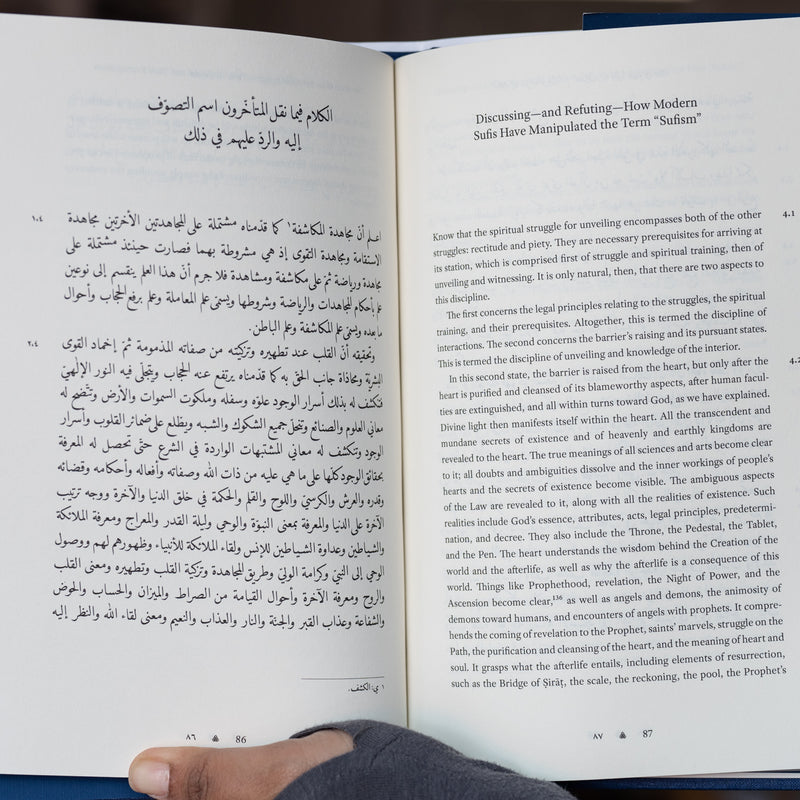 الكلام فيما نقل المتأخّرون اسم التصوّف
إليه والردّ عليهم في ذلك
١.٤
اعلم أنّ مجاهدة المكاشفة١ كما قدّمناه مشتملة على المجاهدتين الأخرتين مجاهدة
الاستقامة ومجاهدة التقوى إذ هي مشروطة بهما فصارت حينئذ مشتملة على
مجاهدة ورياضة ثمّ على مكاشفة ومشاهدة فلا جرم أنّ هذا العلم ينقسم إلى نوعين
علم بأحكام المجاهدات والرياضة وشروطها ويسمّى علم المعاملة وعلم برفع الحجاب وأحوال
ما بعده ويسمّى علم المكاشفة وعلم الباطن.
٢.٤
وتحقيقه أنّ القلب عند تطهيره وتزكيته من صفاته المذمومة ثمّ إخماد القوى
البشريّة ومحاذاة جانب الحقّ به كما قدّمناه يرتفع عنه الحجاب ويتجلّى فيه النور الإلهيّ
فتنكشف له بذلك أسرار الوجود علوّه وسفله وملكوت السموات والأرض وتتّضح له
معاني العلوم والصنائع وتنحلّ جميع الشكوك والشبه ويطلع على ضمائر القلوب وأسرار
الوجود وتنكشف له معاني المتشبهات الواردة في الشرع حتّى تحصل له المعرفة
بحقائق الوجود كلّها على ما هي عليه من ذات الله وصفاته وأفعاله وأحكامه وقضائه
وقدره والعرش والكرسيّ واللوح والقلم والحكمة في خلق الدنيا والآخرة ووجه ترتيب
الآخرة على الدنيا والمعرفة بمعنى النبوّة والوحي وليلة القدر والمعراج ومعرفة الملائكة
والشياطين وعداوة الشياطين للإنس ولقاء الملائكة للأنبياء وظهورهم لهم ووصول
الوحي إلى النبيّ وكرامة الوليّ وطريق المجاهدة وتزكية القلب وتطهيره ومعنى القلب
والروح ومعرفة الآخرة وأحوال القيامة من الصراط والميزان والحساب والحوض
والشفاعة وعذاب القبر والجنّة والنار والعذاب والنعيم ومعنى لقاء الله والنظر إليه
١ ي: الكشف.
٨٦ 86
Discussing—and Refuting—How Modern
Sufis Have Manipulated the Term “Sufism”
4.1
Know that the spiritual struggle for unveiling encompasses both of the other
struggles: rectitude and piety. They are necessary prerequisites for arriving at
its station, which is comprised first of struggle and spiritual training, then of
unveiling and witnessing. It is only natural, then, that there are two aspects to
this discipline.
The first concerns the legal principles relating to the struggles, the spiritual
training, and their prerequisites. Altogether, this is termed the discipline of
interactions. The second concerns the barrier’s raising and its pursuant states.
This is termed the discipline of unveiling and knowledge of the interior.
4.2
In this second state, the barrier is raised from the heart, but only after the
heart is purified and cleansed of its blameworthy aspects, after human facul-
ties are extinguished, and all within turns toward God, as we have explained.
Divine light then manifests itself within the heart. All the transcendent and
mundane secrets of existence and of heavenly and earthly kingdoms are
revealed to the heart. The true meanings of all sciences and arts become clear
to it; all doubts and ambiguities dissolve and the inner workings of people’s
hearts and the secrets of existence become visible. The ambiguous aspects
of the Law are revealed to it, along with all the realities of existence. Such
realities include God’s essence, attributes, acts, legal principles, predetermi-
nation, and decree. They also include the Throne, the Pedestal, the Tablet,
and the Pen. The heart understands the wisdom behind the Creation of the
world and the afterlife, as well as why the afterlife is a consequence of this
world. Things like Prophethood, revelation, the Night of Power, and the
Ascension become clear,136 as well as angels and demons, the animosity of
demons toward humans, and encounters of angels with prophets. It compre-
hends the coming of revelation to the Prophet, saints’ marvels, struggle on the
Path, the purification and cleansing of the heart, and the meaning of heart and
soul. It grasps what the afterlife entails, including elements of resurrection,
such as the Bridge of Ṣirāṭ, the scale, the reckoning, the pool, the Prophet’s
٨٧ 87